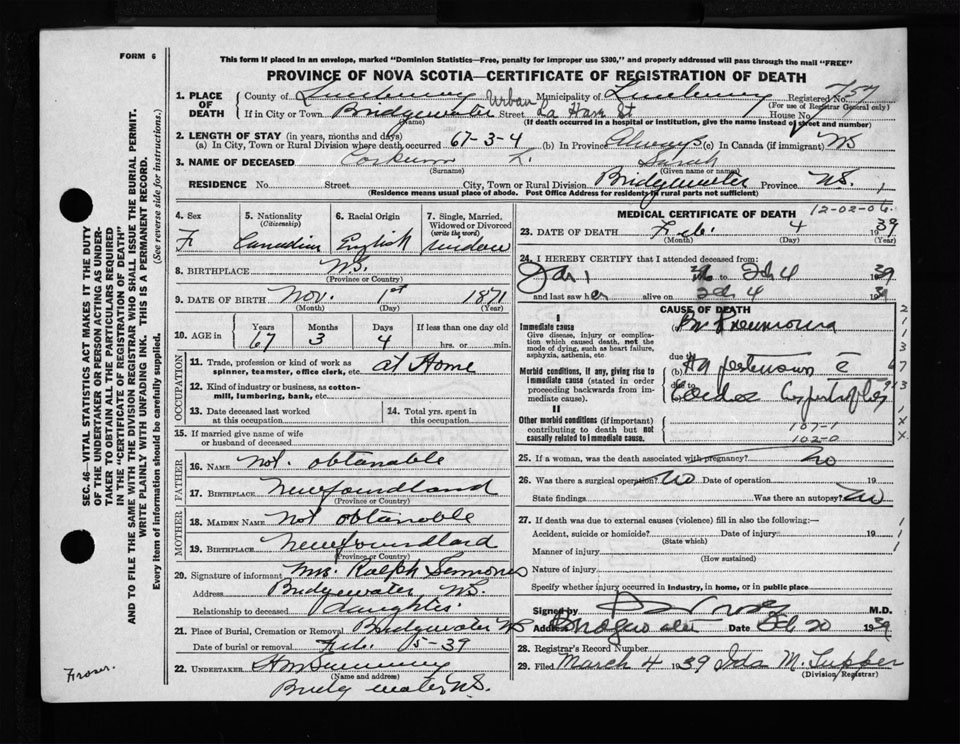 FORM 6
This form if placed in an envelope, marked "Dominion Statistics—Free, penalty for improper use $300," and properly addressed will pass through the mail "FREE"
PROVINCE OF NOVA SCOTIA—CERTIFICATE OF REGISTRATION OF DEATH
1. PLACE OF DEATH County of Lunenburg Urban Municipality of Lunenburg Registered No. 757
(For use of Registrar General only)
If in City or Town Bridgewater Street La Have St House No.
(Name) (If death occurred in a hospital or institution, give the name instead of street and number)
2. LENGTH OF STAY (in years, months and days)
(a) In City, Town or Rural Division where death occurred 67-3-4 (b) In Province Always (c) In Canada (if immigrant) NS
3. NAME OF DECEASED L. Sarah
(Surname) (Given name or names)
RESIDENCE No. Street City, Town or Rural Division Bridgewater Province NS. 1
(Residence means usual place of abode. Post Office Address for residents in rural parts not sufficient)
4. Sex F
5. Nationality (Citizenship) Canadian
6. Racial Origin English
7. Single, Married, Widowed or Divorced (write the word) widow
8. BIRTHPLACE NS.
(Province or Country)
9. DATE OF BIRTH Nov. 1st 1871
(Month) (Day) (Year)
10. AGE in Years 67 Months 3 Days 4 If less than one day old hrs. or min.
OCCUPATION
11. Trade, profession or kind of work as spinner, teamster, office clerk, etc. at Home
12. Kind of industry or business, as cotton-mill, lumbering, bank, etc.
13. Date deceased last worked at this occupation
14. Total yrs. spent in this occupation
15. If married give name of wife or husband of deceased
FATHER
16. NAME not obtanable
17. BIRTHPLACE Newfoundland
(Province or Country)
MOTHER
18. MAIDEN NAME not obtanable
19. BIRTHPLACE Newfoundland
(Province or Country)
20. Signature of informant Mrs. Ralph
Address Bridgewater NS.
Relationship to deceased daughter
21. Place of Burial, Cremation or Removal Bridgewater NS
Date of burial or removal Feb. 5-39
22. UNDERTAKER
(Name and address)
Bridgewater NS.
MEDICAL CERTIFICATE OF DEATH 12-02-06
23. DATE OF DEATH Feb. 4 1939
(Month) (Day) (Year)
24. I HEREBY CERTIFY that I attended deceased from:
Jan 1 to Feb 4 1939
and last saw her alive on Feb 4 1939
CAUSE OF DEATH
I
Immediate cause
Give disease, injury or complication which caused death, not the mode of dying, such as heart failure, asphyxia, asthenia, etc.
(a) Br Pneumonia
due to
Morbid conditions, if any, giving rise to immediate cause (stated in order proceeding backwards from immediate cause).
(b) Hypertension c̄
due to
Cardiac hypertrophy
II
Other morbid conditions (if important) contributing to death but not causally related to immediate cause.
107-1
102-0
25. If a woman, was the death associated with pregnancy? No
26. Was there a surgical operation? No Date of operation 19
State findings Was there an autopsy? No
27. If death was due to external causes (violence) fill in also the following:—
Accident, suicide or homicide? Date of injury 19
(State which)
Manner of injury
(How sustained)
Nature of injury
Specify whether injury occurred in industry, in home, or in public place
Signed by M.D.
Address Bridgewater Date Feb 20 1939
28. Registrar's Record Number
29. Filed March 4 1939 Ida M. Tupper
(Division Registrar)
SEC. 46—VITAL STATISTICS ACT MAKES IT THE DUTY
OF THE UNDERTAKER OR PERSON ACTING AS UNDER-
TAKER TO OBTAIN ALL THE PARTICULARS REQUIRED
IN THE "CERTIFICATE OF REGISTRATION OF DEATH"
AND TO FILE THE SAME WITH THE DIVISION REGISTRAR WHO SHALL ISSUE THE BURIAL PERMIT.
WRITE PLAINLY WITH UNFADING INK. THIS IS A PERMANENT RECORD.
Every item of information should be carefully supplied. (See reverse side for instructions.)